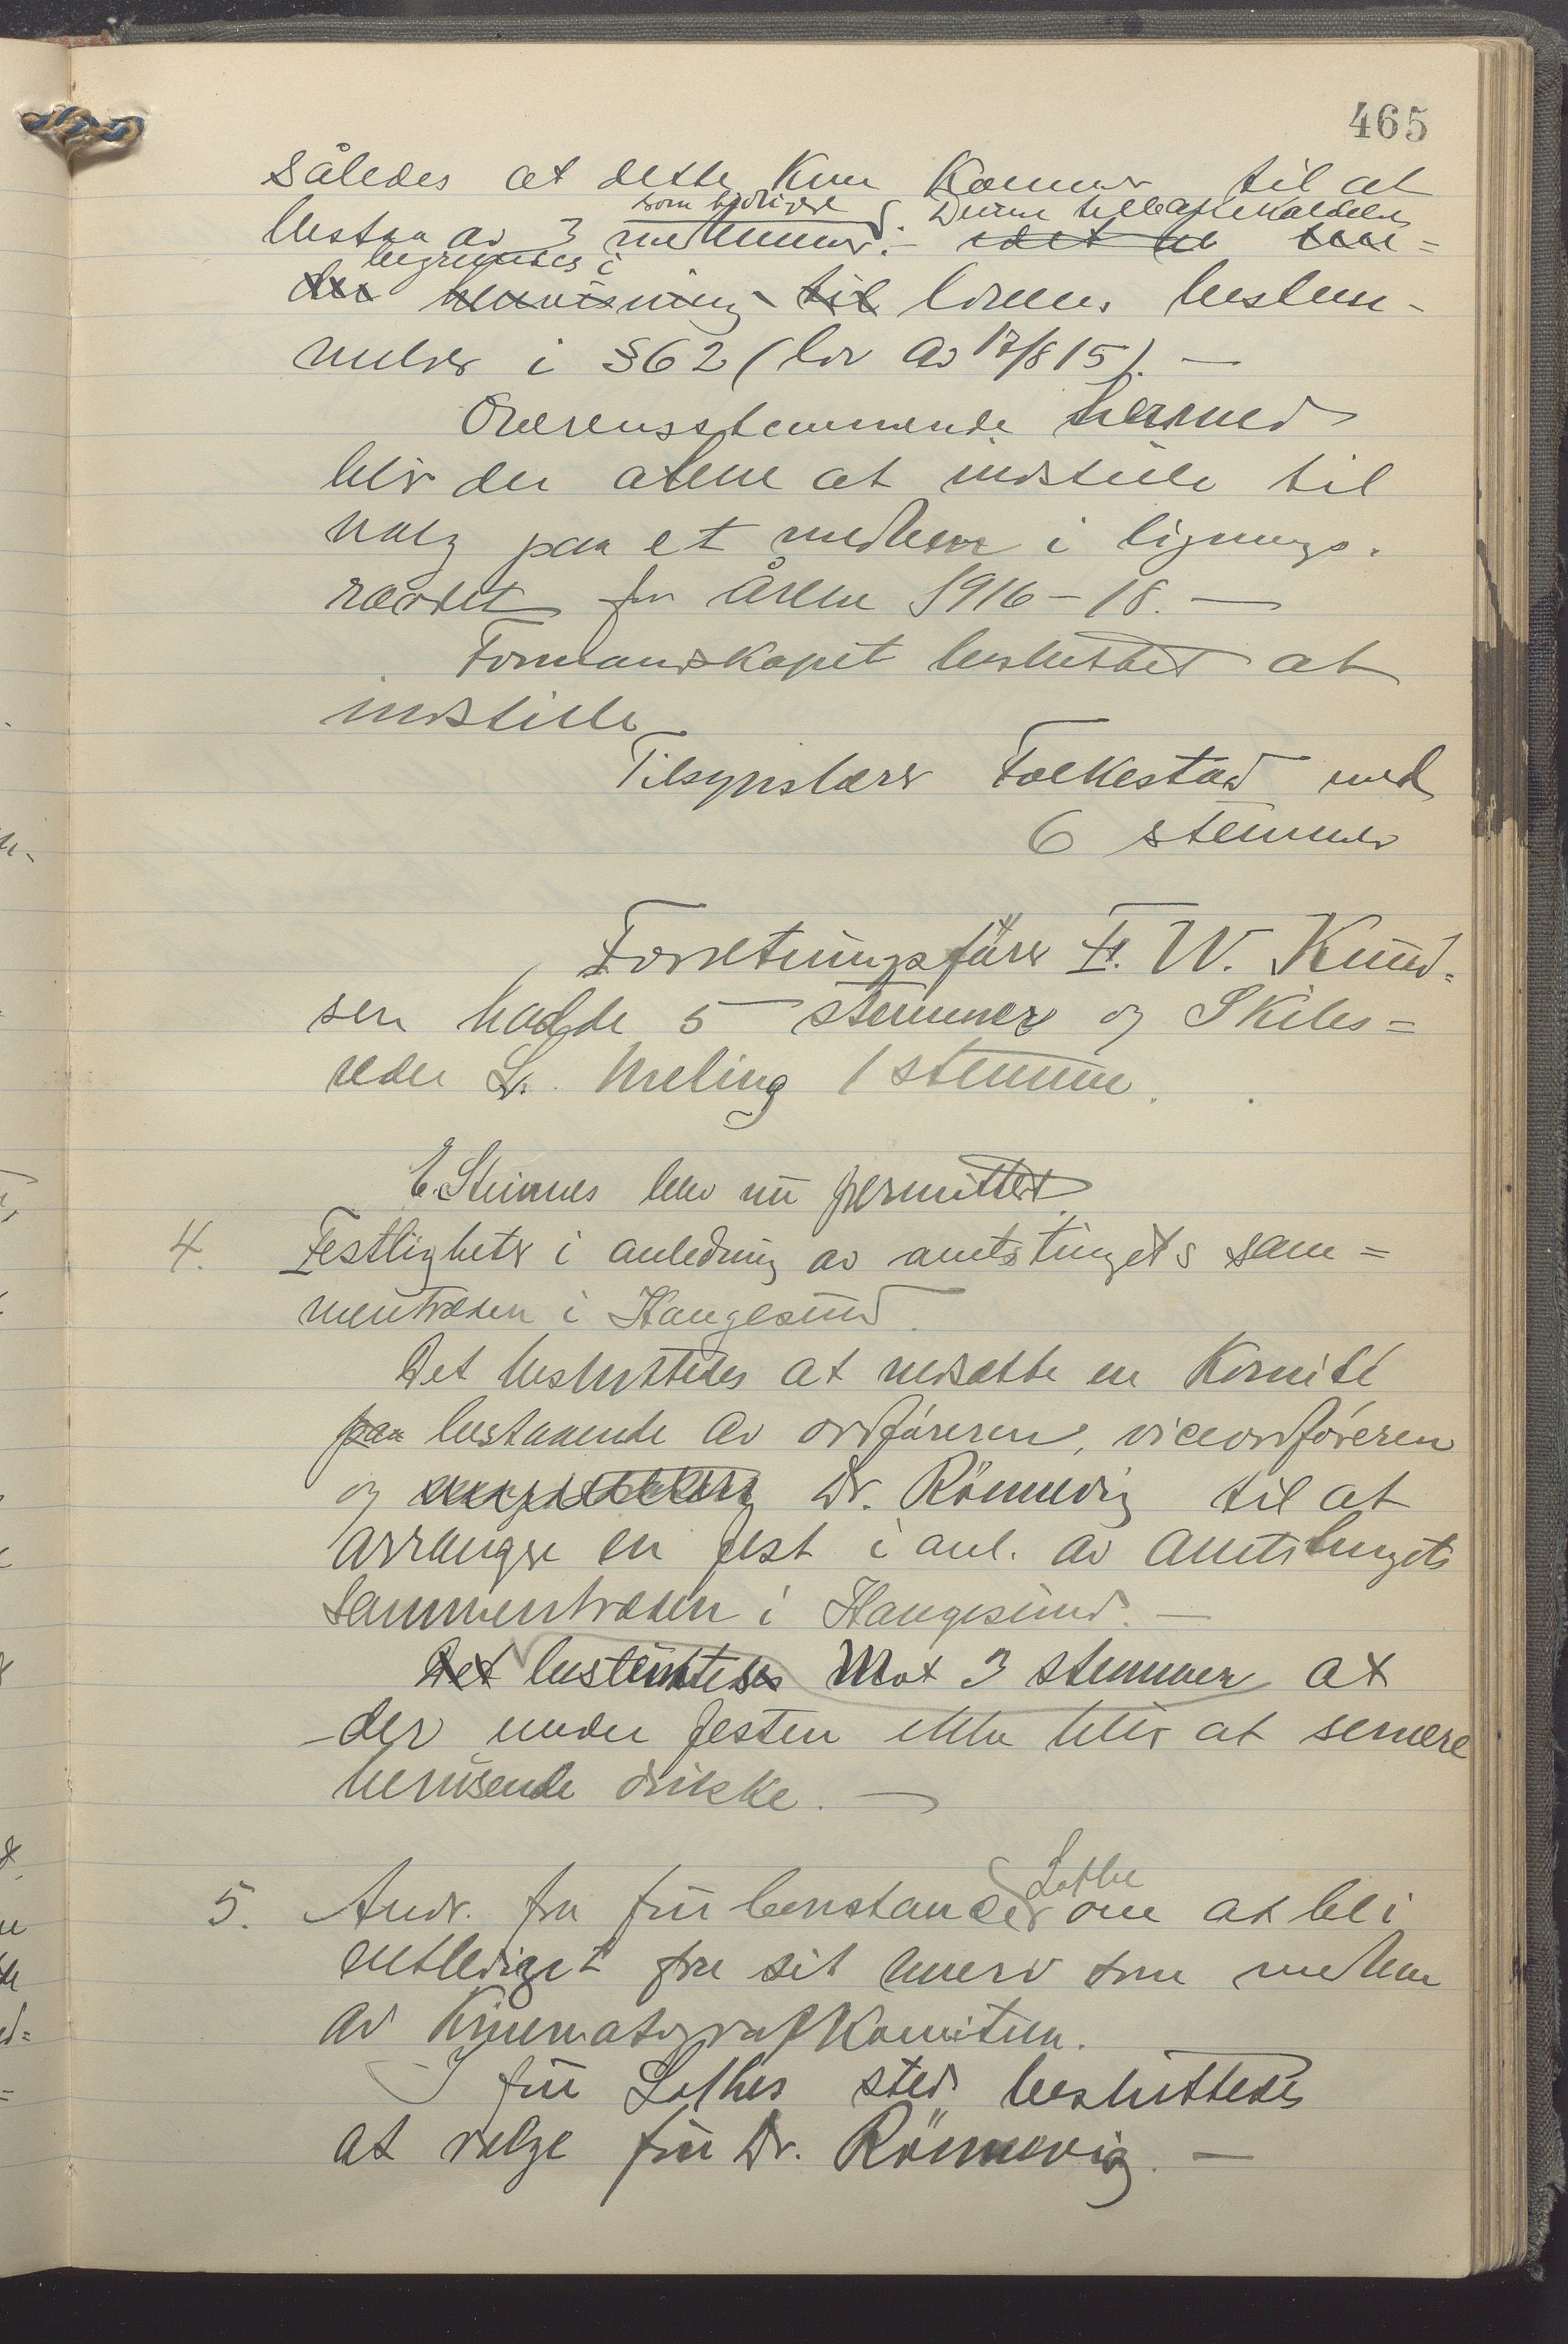 465
således at dette kun kommer til at
som tidligere Denne tilbakekaldelse
bestaa av 3 medlemmer. – idet der hen=
begrundes i
der henvisning til lovens bestem-
melser i §62 (lov av 17/8 15). –
Overensstemmende hermed
blir der alene at indstille til
valg paa et medlem i lignings-
raadet for årene 1916–18. –
Formandskapet besluttet at
indstille
Tilsynslærer Folkestad med
6 stemmer
Forretningsfører Fr. W. Knud=
sen hadde 5 stemmer og Skibs=
reder L. Meling 1 stemme.
E. Steinnes blev nu permittert.
4. Festligheter i anledning av amtstingets sam=
mentræden i Haugesund.
Det besluttedes at nedsætte en Komité
paa bestaaende av ordføreren, viceordføreren
og Dr. Rönnevig til at
arrangere en fest i anl. av amtstingets
sammentræden i Haugesund. –
Det bestemtes mot 3 stemmer at
der under festen ikke blir at servere
berusende drikke. –
Lothe
5. Andr. fra fru Constance om at bli
entlediget fra sit hverv som medlem
av Kinematografkomiteen.
I fru Lothes sted besluttedes
at velge fru Dr. Rönnevig. –